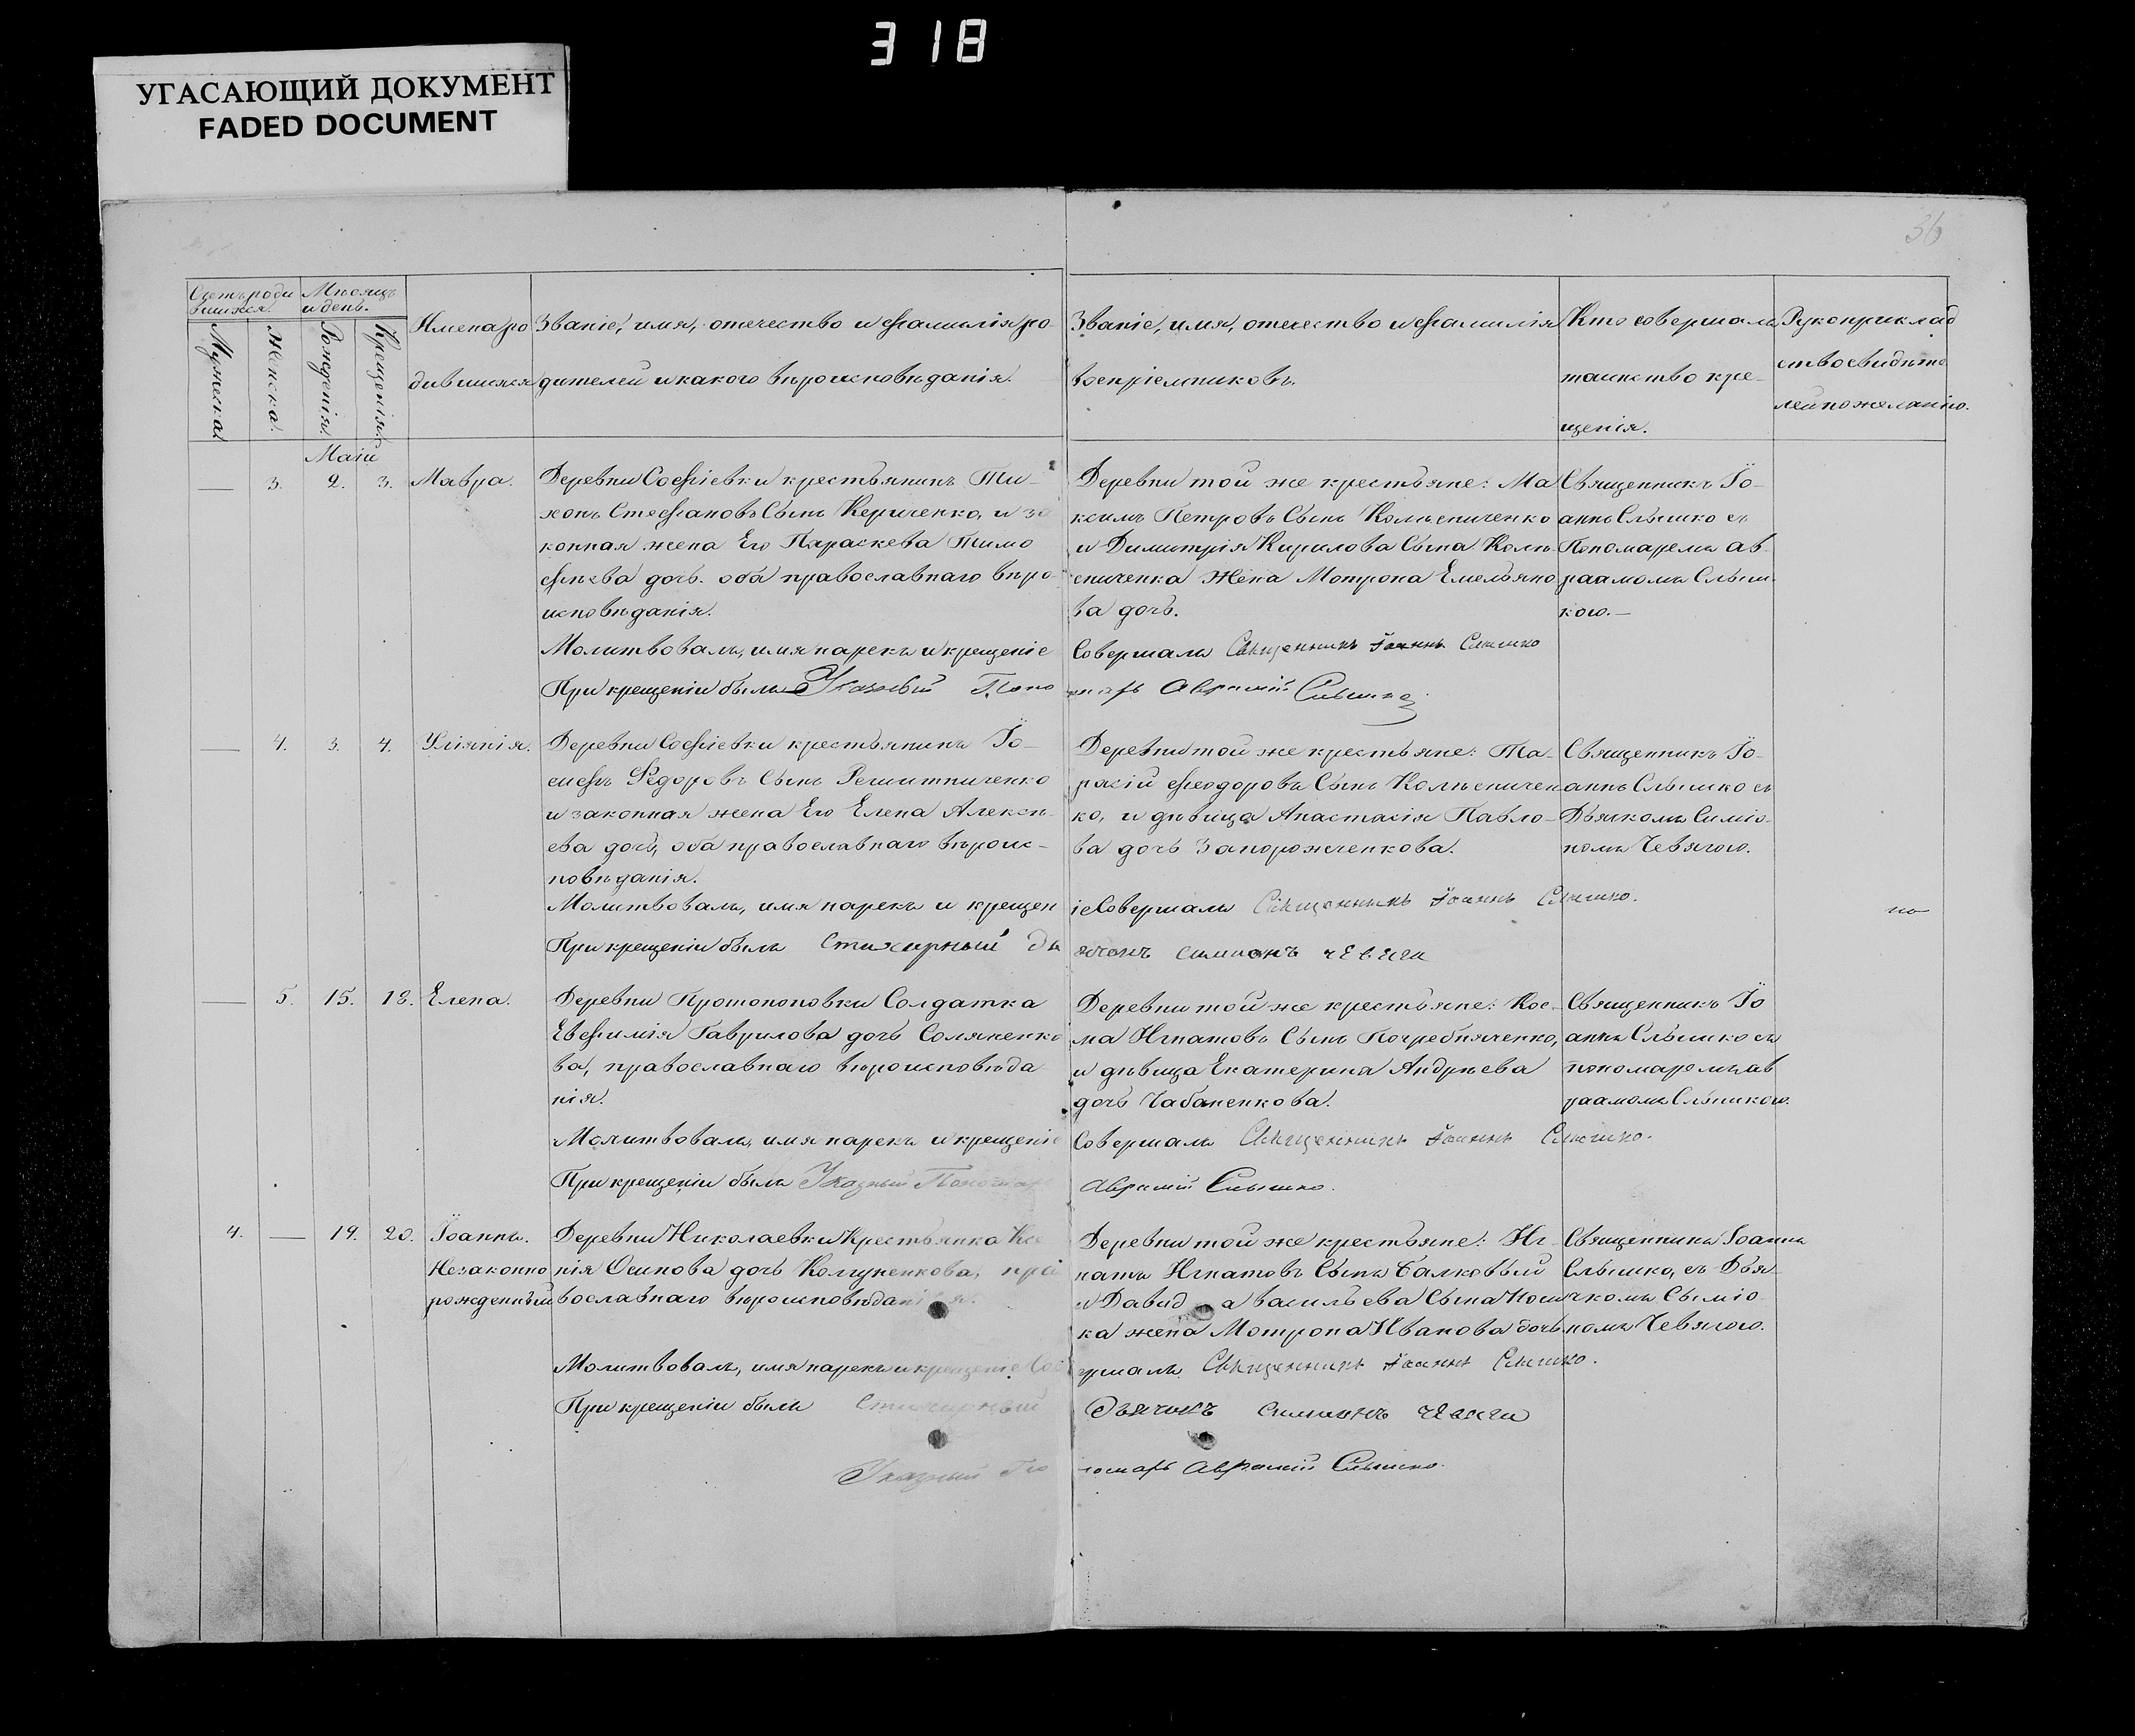 318
УГАСАЮЩИЙ ДОКУМЕНТ
FADED DOCUMENT
36
Счетъ роди
вшихся.
Мѣсяцъ
и день.
Мужеска.
Женска.
Рожденія.
Крещенія.
Имена ро
дившихся
Званіе, имя, отечество и фамилія ро-
дителей и какого вѣроисповѣданія.
Званіе, имя, отечество и фамилія
воспріемниковъ.
Кто совершалъ
таинство кре-
щенія.
Рукоприклад
ство свидѣте
лей по желанію.
Маій
— 3. 2. 3. Мавра.
Деревни Софіевки крестьянинъ Ти-
хонъ Стефановъ Сынъ Кериченко, и за
конная жена Его Параскева Тимо
фѣева дочь. оба православнаго вѣро-
исповѣданія.
Молитвовалъ, имя нарекъ и крещеніе
При крещеніи былъ Указный Поно
Деревни той же крестьяне: Ма
ксимъ Петровъ Сынъ Колѣсниченко
и Димитрія Кирилова Сына Колѣ-
сниченка Жена Мотрона Емельяно
ва дочь.
Совершалъ Священникъ Іоаннъ Слышко
марь Аврамій Слышко
Священникъ Іо-
аннъ Слышко съ
Пономаремъ Ав
раамомъ Слыш
кою.—
— 4. 3. 4. Уліянія.
Деревни Софіевки крестьянинъ Іо-
сифъ Федоровъ Сынъ Решитниченко
и законная жена Его Елена Алексѣ-
ева дочь, оба православнаго вѣроис-
повѣданія.
Молитвовалъ, имя нарекъ и крещен
При крещеніи былъ Стихирный дь
Деревни той же крестьяне: Та-
расій Феодоровъ Сынъ Колѣсничен
ко, и дѣвица Анастасія Павло-
ва дочь Запорожченкова.
іе Совершалъ Священникъ Іоаннъ Слышко.
ячокъ Симионъ Чевяги
Священникъ Іо-
аннъ Слышко съ
Дьячкомъ Симіо-
номъ Чевягою.
по
— 5. 15. 18. Елена.
Деревни Протопоповки Солдатка
Евфимія Гаврилова дочь Соляненко
ва, православнаго вѣроисповѣда
нія.
Молитвовалъ, имя нарекъ и крещеніе
При крещеніи былъ Указный Пономарь
Деревни той же крестьяне: Кос-
ма Игнатовъ Сынъ Погребняченко,
и дѣвица Екатерина Андрѣева
дочь Чабаненкова.
Совершалъ Священникъ Іоаннъ Слышко.
Аврамій Слышко.
Священникъ Іо
аннъ Слышко съ
пономаремъ Ав
раамомъ Слышкою.
4. — 19. 20. Іоаннъ.
Незаконно
рожденный
Деревни Николаевки Крестьянка Ксе
нія Осипова дочь Колпуненкова, пра
вославнаго вѣроисповѣданія.
Молитвовалъ, имя нарекъ и крещеніе Сов
При крещеніи былъ Стихирный
Указный По
Деревни той же крестьяне: Иг-
натъ Игнатовъ Сынъ Балковый
и Давида Васильева Сына Нош
ка жена Мотрона Иванова дочь
ершалъ Священникъ Іоаннъ Слышко.
Дьячокъ Симионъ Чевяги
номарь Аврамій Слышко.
Священникъ Іоаннъ
Слышко, съ Дья-
чкомъ Сыміо
номъ Чевягою.